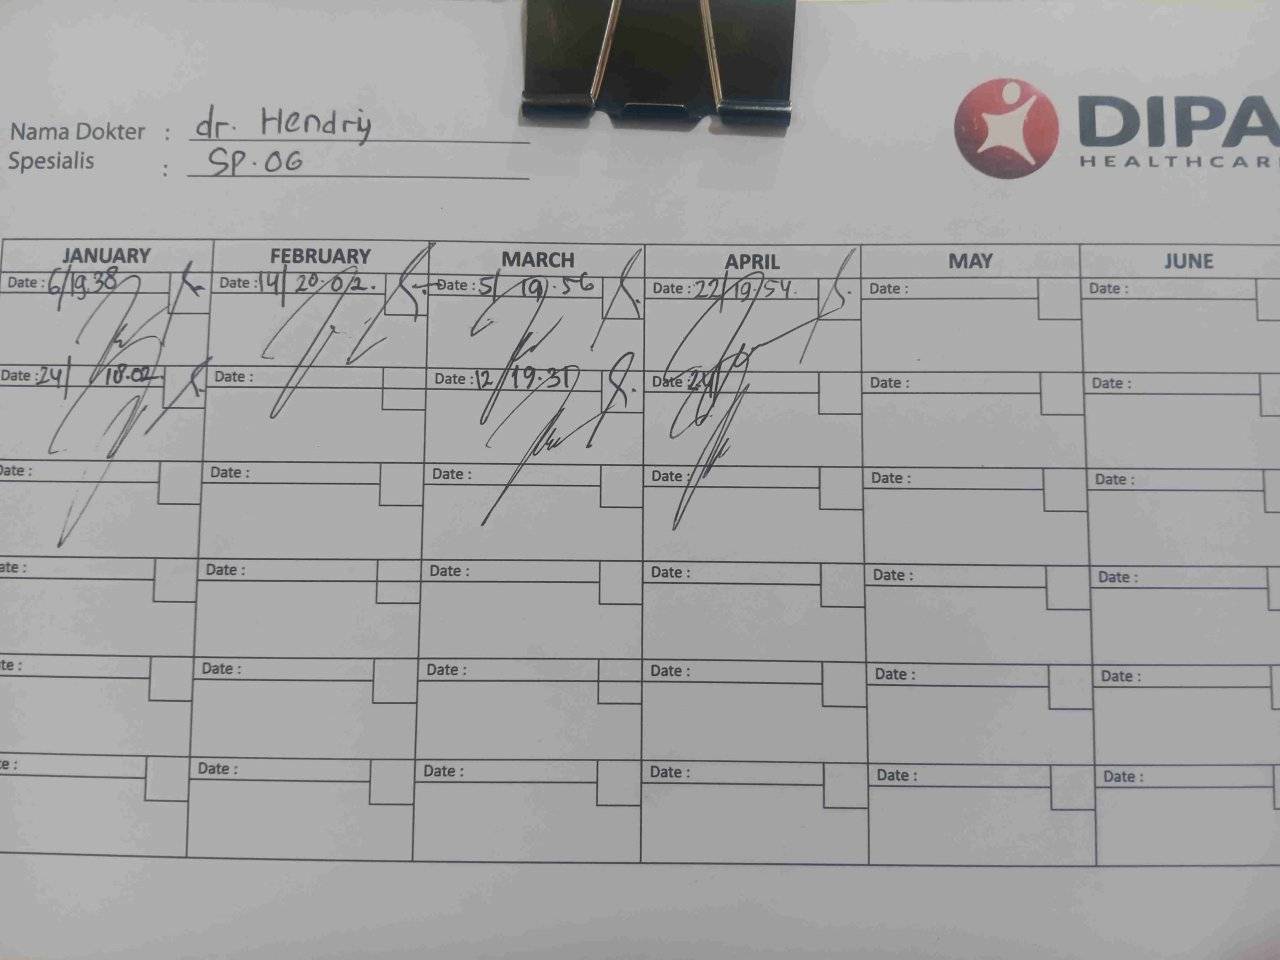 Nama Dokter : dr. Hendriy
Spesialis : SP.OG
DIPA
HEALTHCAR
JANUARY FEBRUARY MARCH APRIL MAY JUNE
Date : 6/19.38 Date : 14/ 20.02. Date : 5/ 19.56 Date : 22/19.54. Date : Date :
Date : 24/ 18.02 Date : Date : 12/19.31 Date : 24/ Date : Date :
Date : Date : Date : Date : Date : Date :
ate : Date : Date : Date : Date : Date :
te : Date : Date : Date : Date : Date :
e : Date : Date : Date : Date : Date :